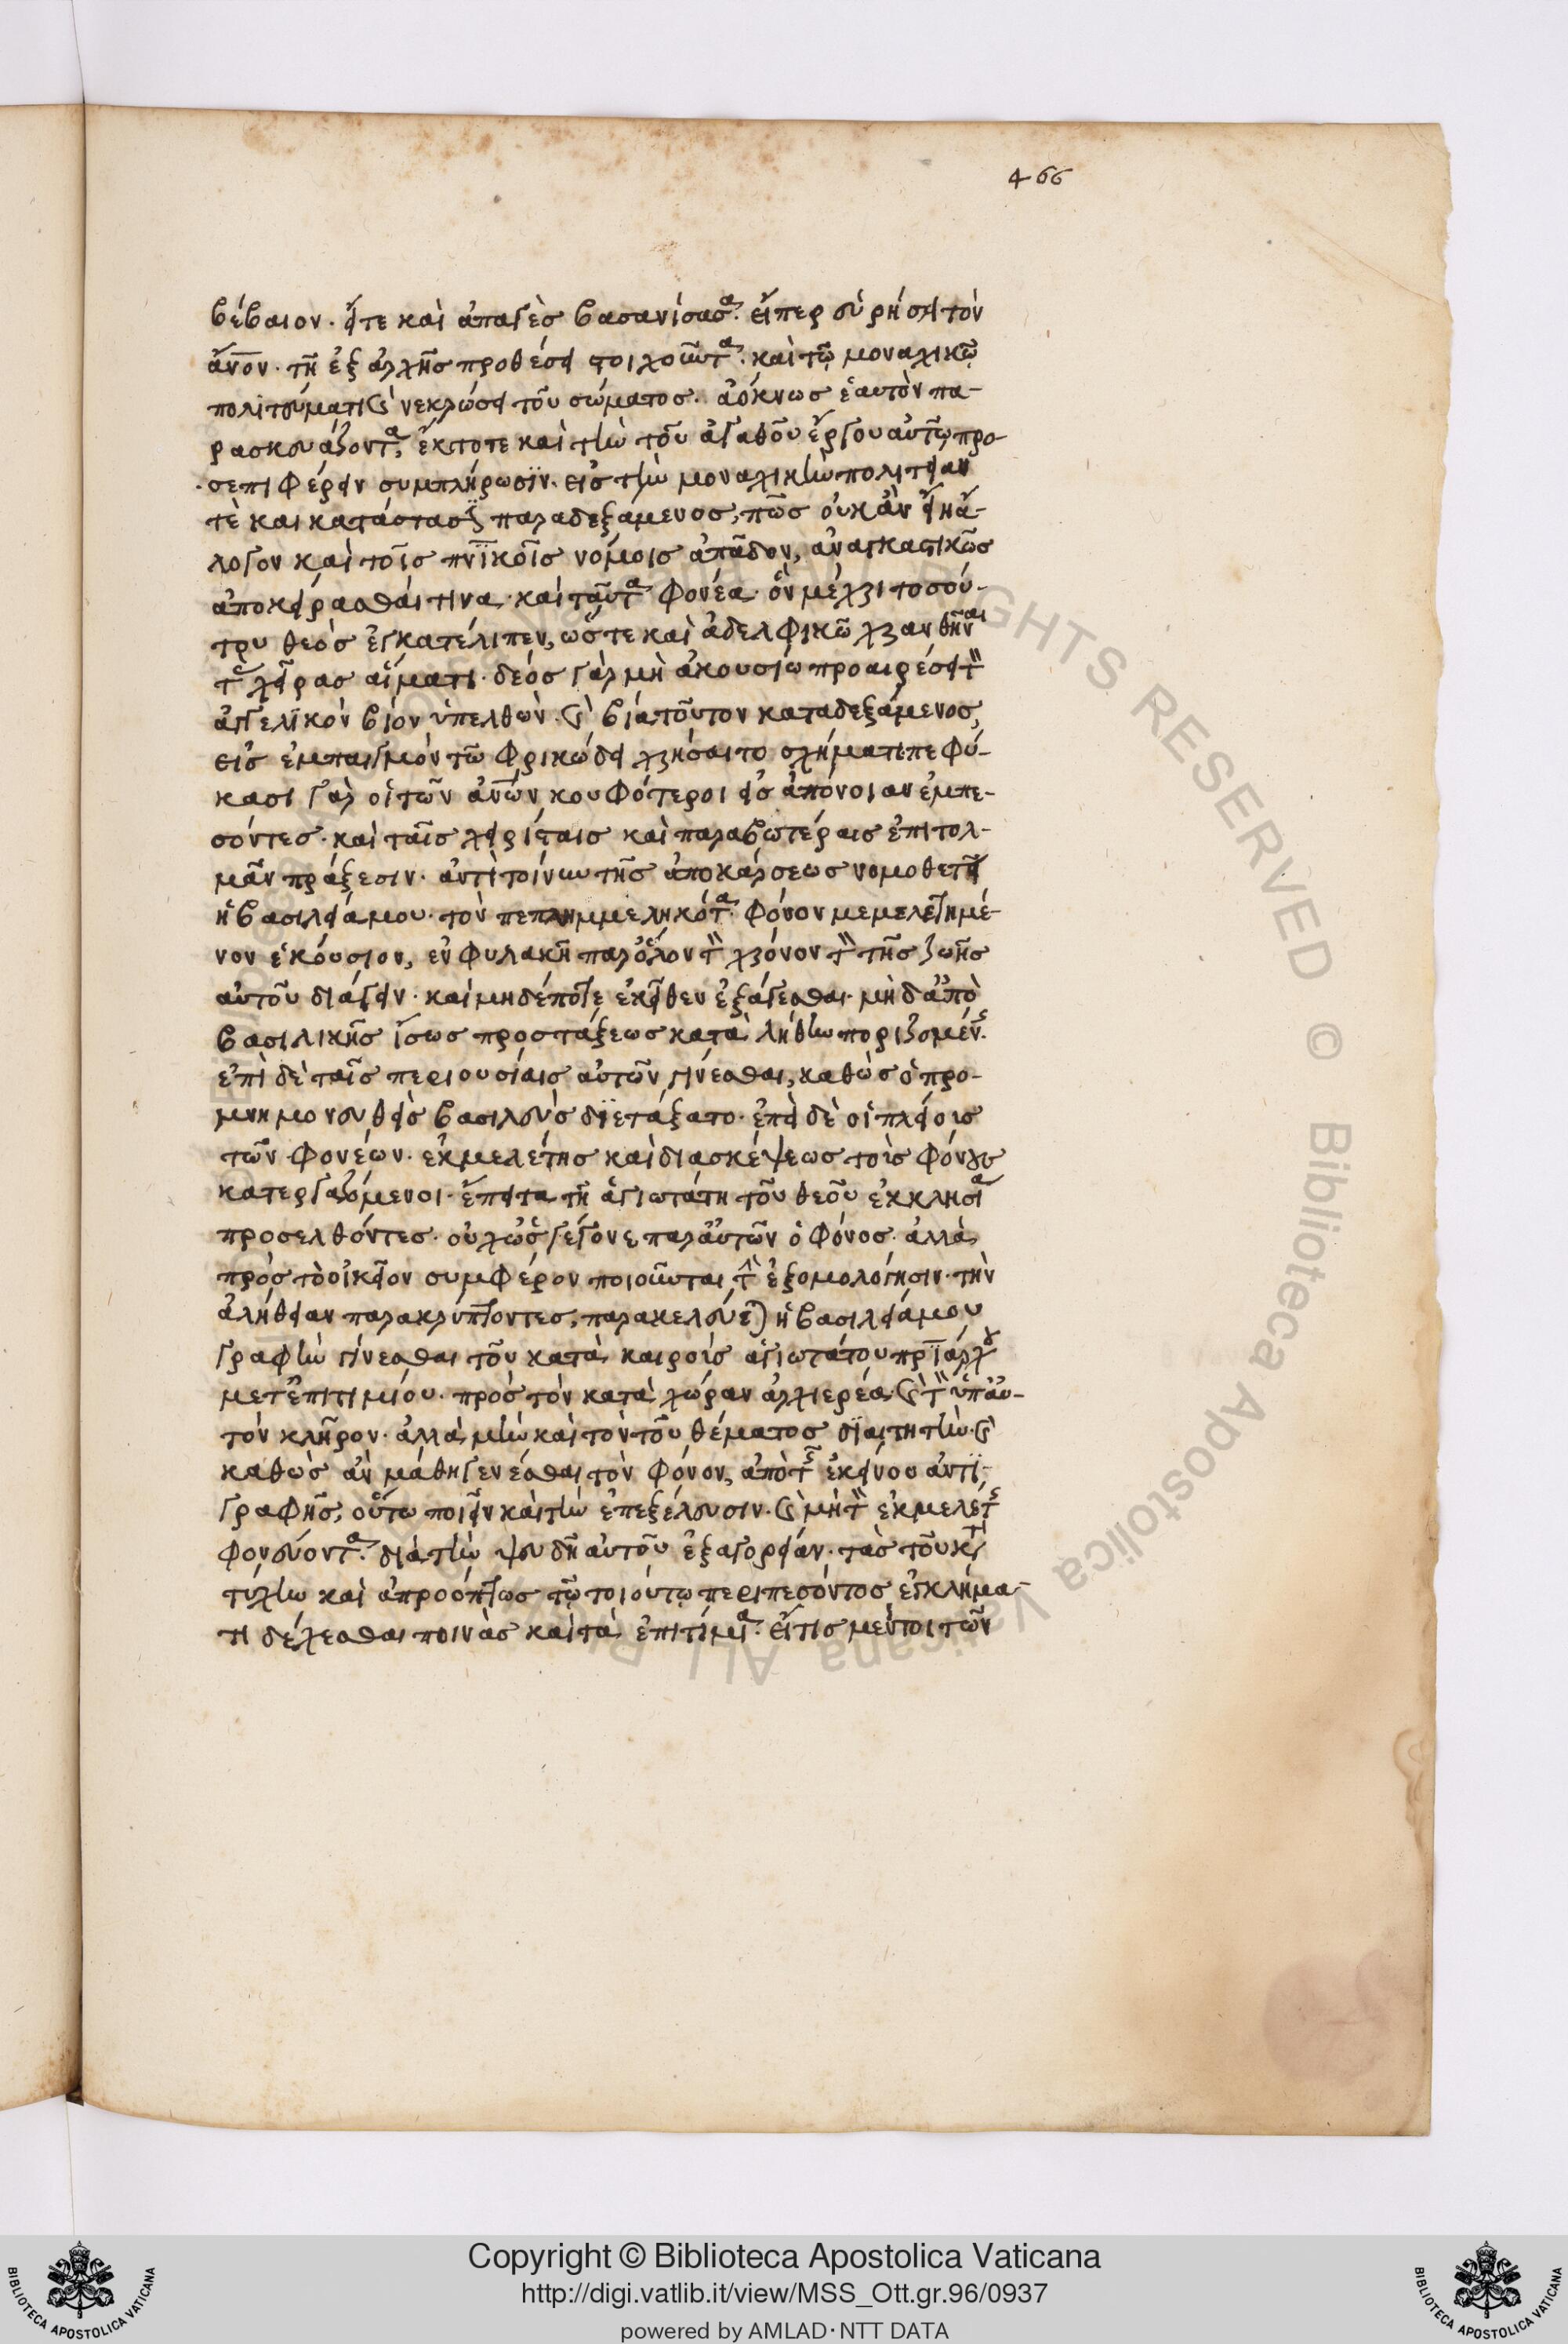 466
βέβαιον· εἴτε καὶ ἀπαγὲς βασανίσαστ(α)· εἴπερ εὑρήσει τὸν
ἄνον· τῇ ἐξ ἀρχῆς προθέσει στοιχοῦντ(α)· καὶ τῷ μοναχικῷ
πολιτεύματι (καὶ) νεκρώσει τοῦ σώματος· ἀόκνως ἑαυτὸν πα-
ρασκευάζοντ(α), ἔκτοτε καὶ τὴν τοῦ ἀγαθοῦ ἔργου αὐτῷ προ-
σεπιφέρειν συμπλήρωσιν· εἰς τὴν μοναχικὴν πολιτείαν
τὲ καὶ κατάστασιν παραδεξάμενος, πῶς οὐκ ἂν εἴη ἄ-
λογον καὶ τοῖς πνϊκοῖς νόμοις ἀπᾶδον, ἀναγκαστικῶς
ἀποκείρασθαί τινα· καὶ ταῦτ(α) φονέα· ὃν μέχρι τοσού-
του θεὸς ἐγκατέλιπεν, ὥστε καὶ ἀδελφικῶ χρανθῆναι
τ(ὰς) χεῖρας αἵματι· δέος γὰρ μὴ ἀκουσίω προαιρέσει τ(ὸν)
ἀγγελϊκὸν βίον ὑπελθὼν· (καὶ) βία τοῦτον καταδεξάμενος,
εἰς ἐμπαιγμὸν τῶ φρικώδει χρήσαιτο σχήματι πεφύ-
κασι γὰρ οἱ τῶν ἀνων κουφότεροι εἰς ἀπόνοιαν ἐμπε-
σόντες· καὶ ταῖς χειρίσταις καὶ παραβωτέραις ἐπιτολ-
μᾶν πράξεσιν· ἀντὶ τοίνυν τῆς ἀποκάρσεως νομοθετεῖ
ἡ βασιλεία μου· τὸν πεπλημμεληκότ(α)· φόνον μεμελετημέ-
νον ἑκούσιον, ἐν φυλακῇ παρ' ὅλον τ(ὸν) χρόνον τ(ὸν) τῆς ζωῆς
αὐτοῦ διάγειν· καὶ μηδέποτε ἐκεῖθεν ἐξάγεσθαι· μὴ δ' ἀπὸ
βασιλικῆς ἴσως προστάξεως κατὰ λήθην ποριζομέν(ης)·
ἐπὶ δὲ ταῖς περιουσίαις αὐτῶν γίνεσθαι, καθὼς ὁ προ-
μνημονευθεὶς βασιλεὺς δϊετάξατο· ἐπεὶ δὲ οἱ πλείοις
τῶν φονέων· ἐκ μελέτης καὶ διασκέψεως τοὶς φόνους
κατεργαζόμενοι· ἔπειτα τῇ ἁγιωτάτη τοῦ θεοῦ ἐκκλησί(α)
προσελθόντες· οὐχ ὡς γέγονε παρ' αὐτῶν ὁ φόνος· ἀλλὰ
πρὸς τὸ οἰκεῖον συμφέρον ποιοῦνται τ(ὴν) ἐξομολόγησιν· τὴν
ἀλήθειαν παρακρύπτοντες, παρακελεύετ(αι) ἡ βασιλεία μου
γραφὴν γίνεσθαι τοῦ κατὰ καιροὶς ἁγιωτάτου πρϊάρχου
μετ' ἐπιτιμίου· πρὸς τὸν κατὰ χώραν ἀρχιερέα (καὶ) τ(ὸν) ὑπ' αὐ-
τὸν κλῆρον· ἀλλὰ μὴν καὶ τὸν τοῦ θέματος δϊαιτητὴν· (καὶ)
καθὼς ἂν μάθη γενέσθαι τὸν φόνον, ἀπὸ τ(ῆς) ἐκείνου ἀντϊ-
γραφῆς, οὕτω ποιεῖν καὶ τὴν ἐπεξέλευσιν· (καὶ) μὴ τ(ὸν) ἐκ μελέτ(ης)
φονεύοντ(α)· διὰ τὴν ψευδῆ αὐτοῦ ἐξαγορείαν· τὰς τοῦ κ(ατὰ)
τύχην καὶ ἀπροόπτως τῷ τοιούτῳ περιπεσόντος ἐγκλήμα-
τι δέχεσθαι ποινὰς καὶ τὰ ἐπιτίμι(α)· εἴτις μέντοι τῶν
Copyright © Biblioteca Apostolica Vaticana
http://digi.vatlib.it/view/MSS_Ott.gr.96/0937
powered by AMLAD·NTT DATA